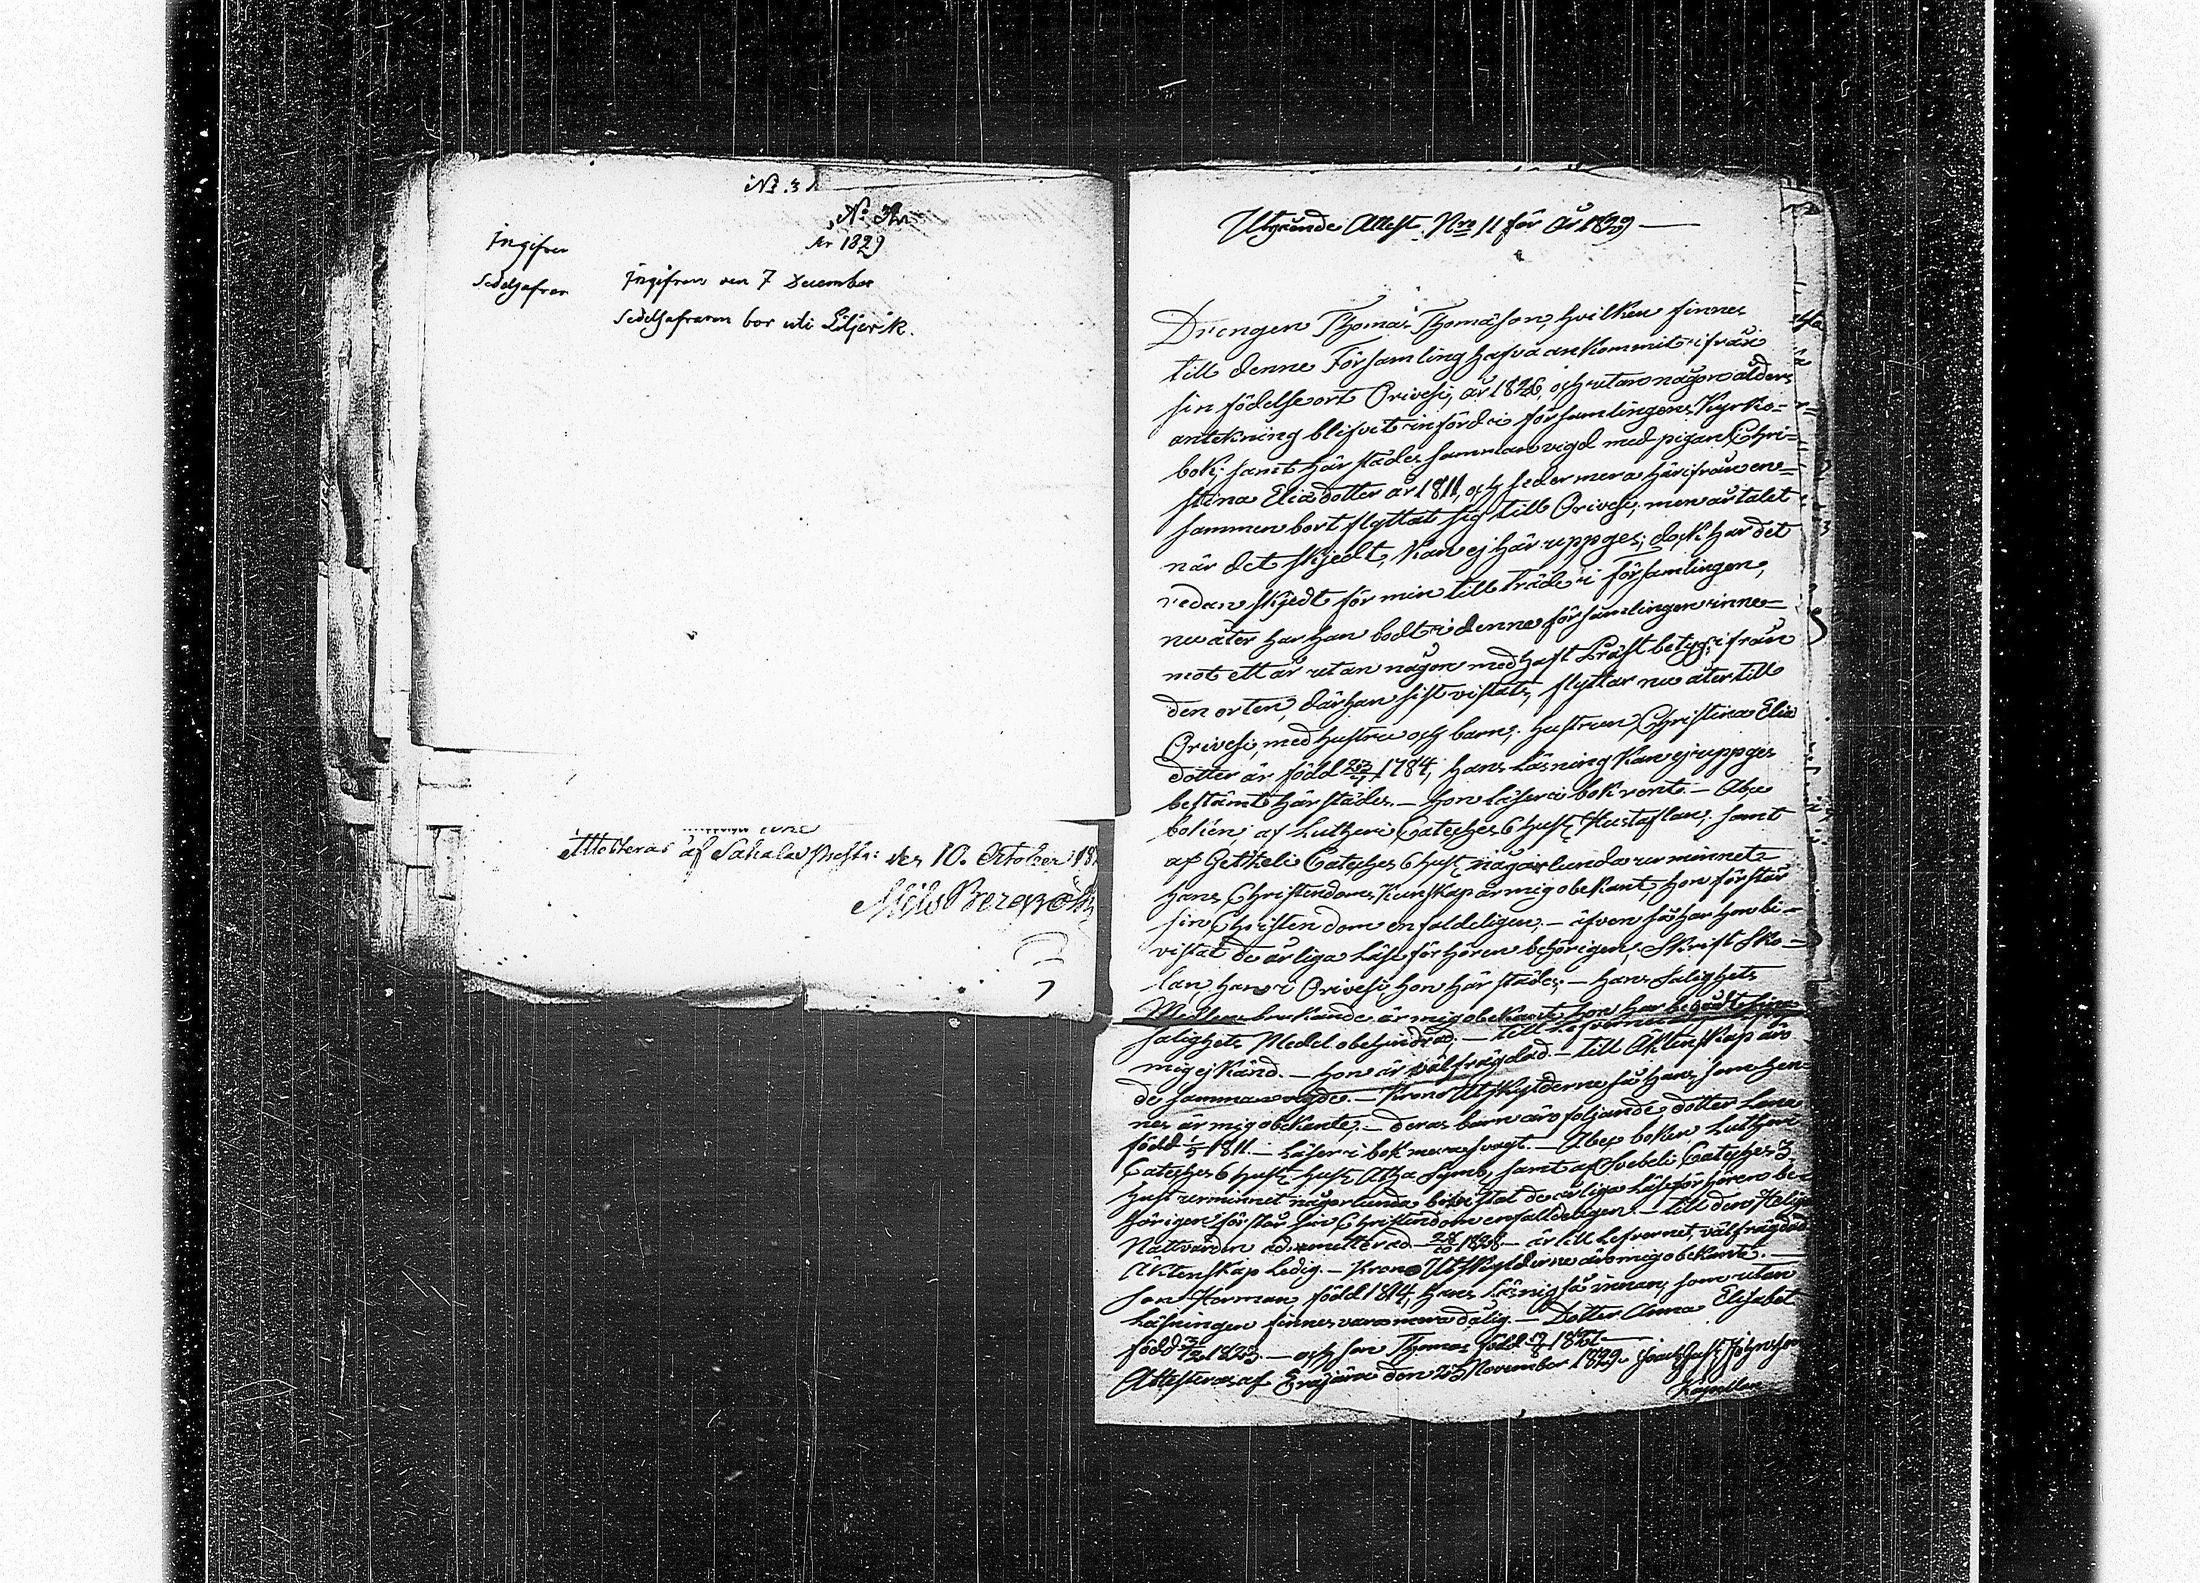 No. 3
No
År 1829
Ingifven
Sedelhafvaren
Ingifven den 7 December
Sedelhafvaren bor uti Eljerik.
Attesteras af Sahalax Prestg: den 10. October 18
Nils Bergroth
Utgående Attest Nro 11 för år 1829
Drengen Thomas Thomasson, hvilken finnes
till denne Församling hafva ankommit ifrån
sin födelse ort Orivesi, år 1826, och utan någon ålders
antekning blifvit införd i församlingens Kyrko-
bok, samt härstädes samman vigd med pigan Chri-
stina Eliædotter år 1811, och sedermera härifrån en-
sammen bort flyttat sig till Orivesi, men årtalet
när det skjedt, kan ej här uppges, dock har det
redan skjedt för min tillträde i församlingen,
nu åter har han bodt i denne församlingen inne-
mot ett år utan någon medhaft Präst betyg ifrån
den orten, där han sist vistats, flyttar nu åter till
Orivesi, med hustru och barn, hustrun Christina Eliæ
dotter är född 1784, hans Läsning kan ej uppges
bestämt härstädes. – hon läser i bok rent. – Abc
boken, af Lutheri Cateches 6 huf: Hustaflan, samt
af Getheli Cateches 6 huf: någorlunda ur minnet
hans Christendoms Kunskap är mig obekant, hon förstår
sin Christendom enfaldeligen, – äfven så har hon bi-
vistat de årliga Läseförhören behörigen, Skrift Sko-
lan han i Orivesi hon härstädes. – hans Salighets
Medlens brukande är mig obekant hon har begådt sina
salighets Medel obehindrad. – till Lefvernet
mig ej känd. – hon är välfrägdad. – till Äktenskap äro
de sammanvigde. – Krono Utskylderne så hans som hen-
nes är mig obekante, – deras barn äro följande, dotter Lena
född 1811. – Läser i bok mera svagt. – Abc boken Lutheri
Cateches 6 huf: huf: Atha Symb, samt af Svebeli Cateches 3
huf ur minnet någorlunda bivistat de årliga Läseförhören be-
hörigen förstår sin Christendom enfalldeligen. – till den Heliga
Nattvarden admitterad 1828 – är till Lefvernet välfrägdad
Äktenskap Ledig. – Krono Utskylderne äro mig obekante. –
Son Herman, född 1814, hans Läsning så innan, som utan
Läsningen finnes vara mera dålig. – Dotter Anna Elisabet
född 1823. – och son Thomas född 1827 –
Attesteras af Eräjärvi den 23 November 1829.
Kapellan